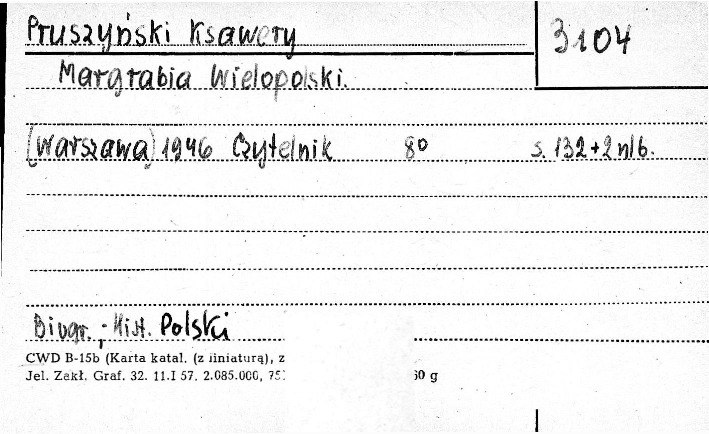 Pruszyński Ksawery
3104
Margrabia Wielopolski.
[Warszawa] 1946 Czytelnik 8° s. 132+2 nlb.
Biogr.; Hist. Polski
CWD B-15b (Karta katal. (z liniaturą), z
Jel. Zakł. Graf. 32. 11.I 57. 2.085.000, 0 g